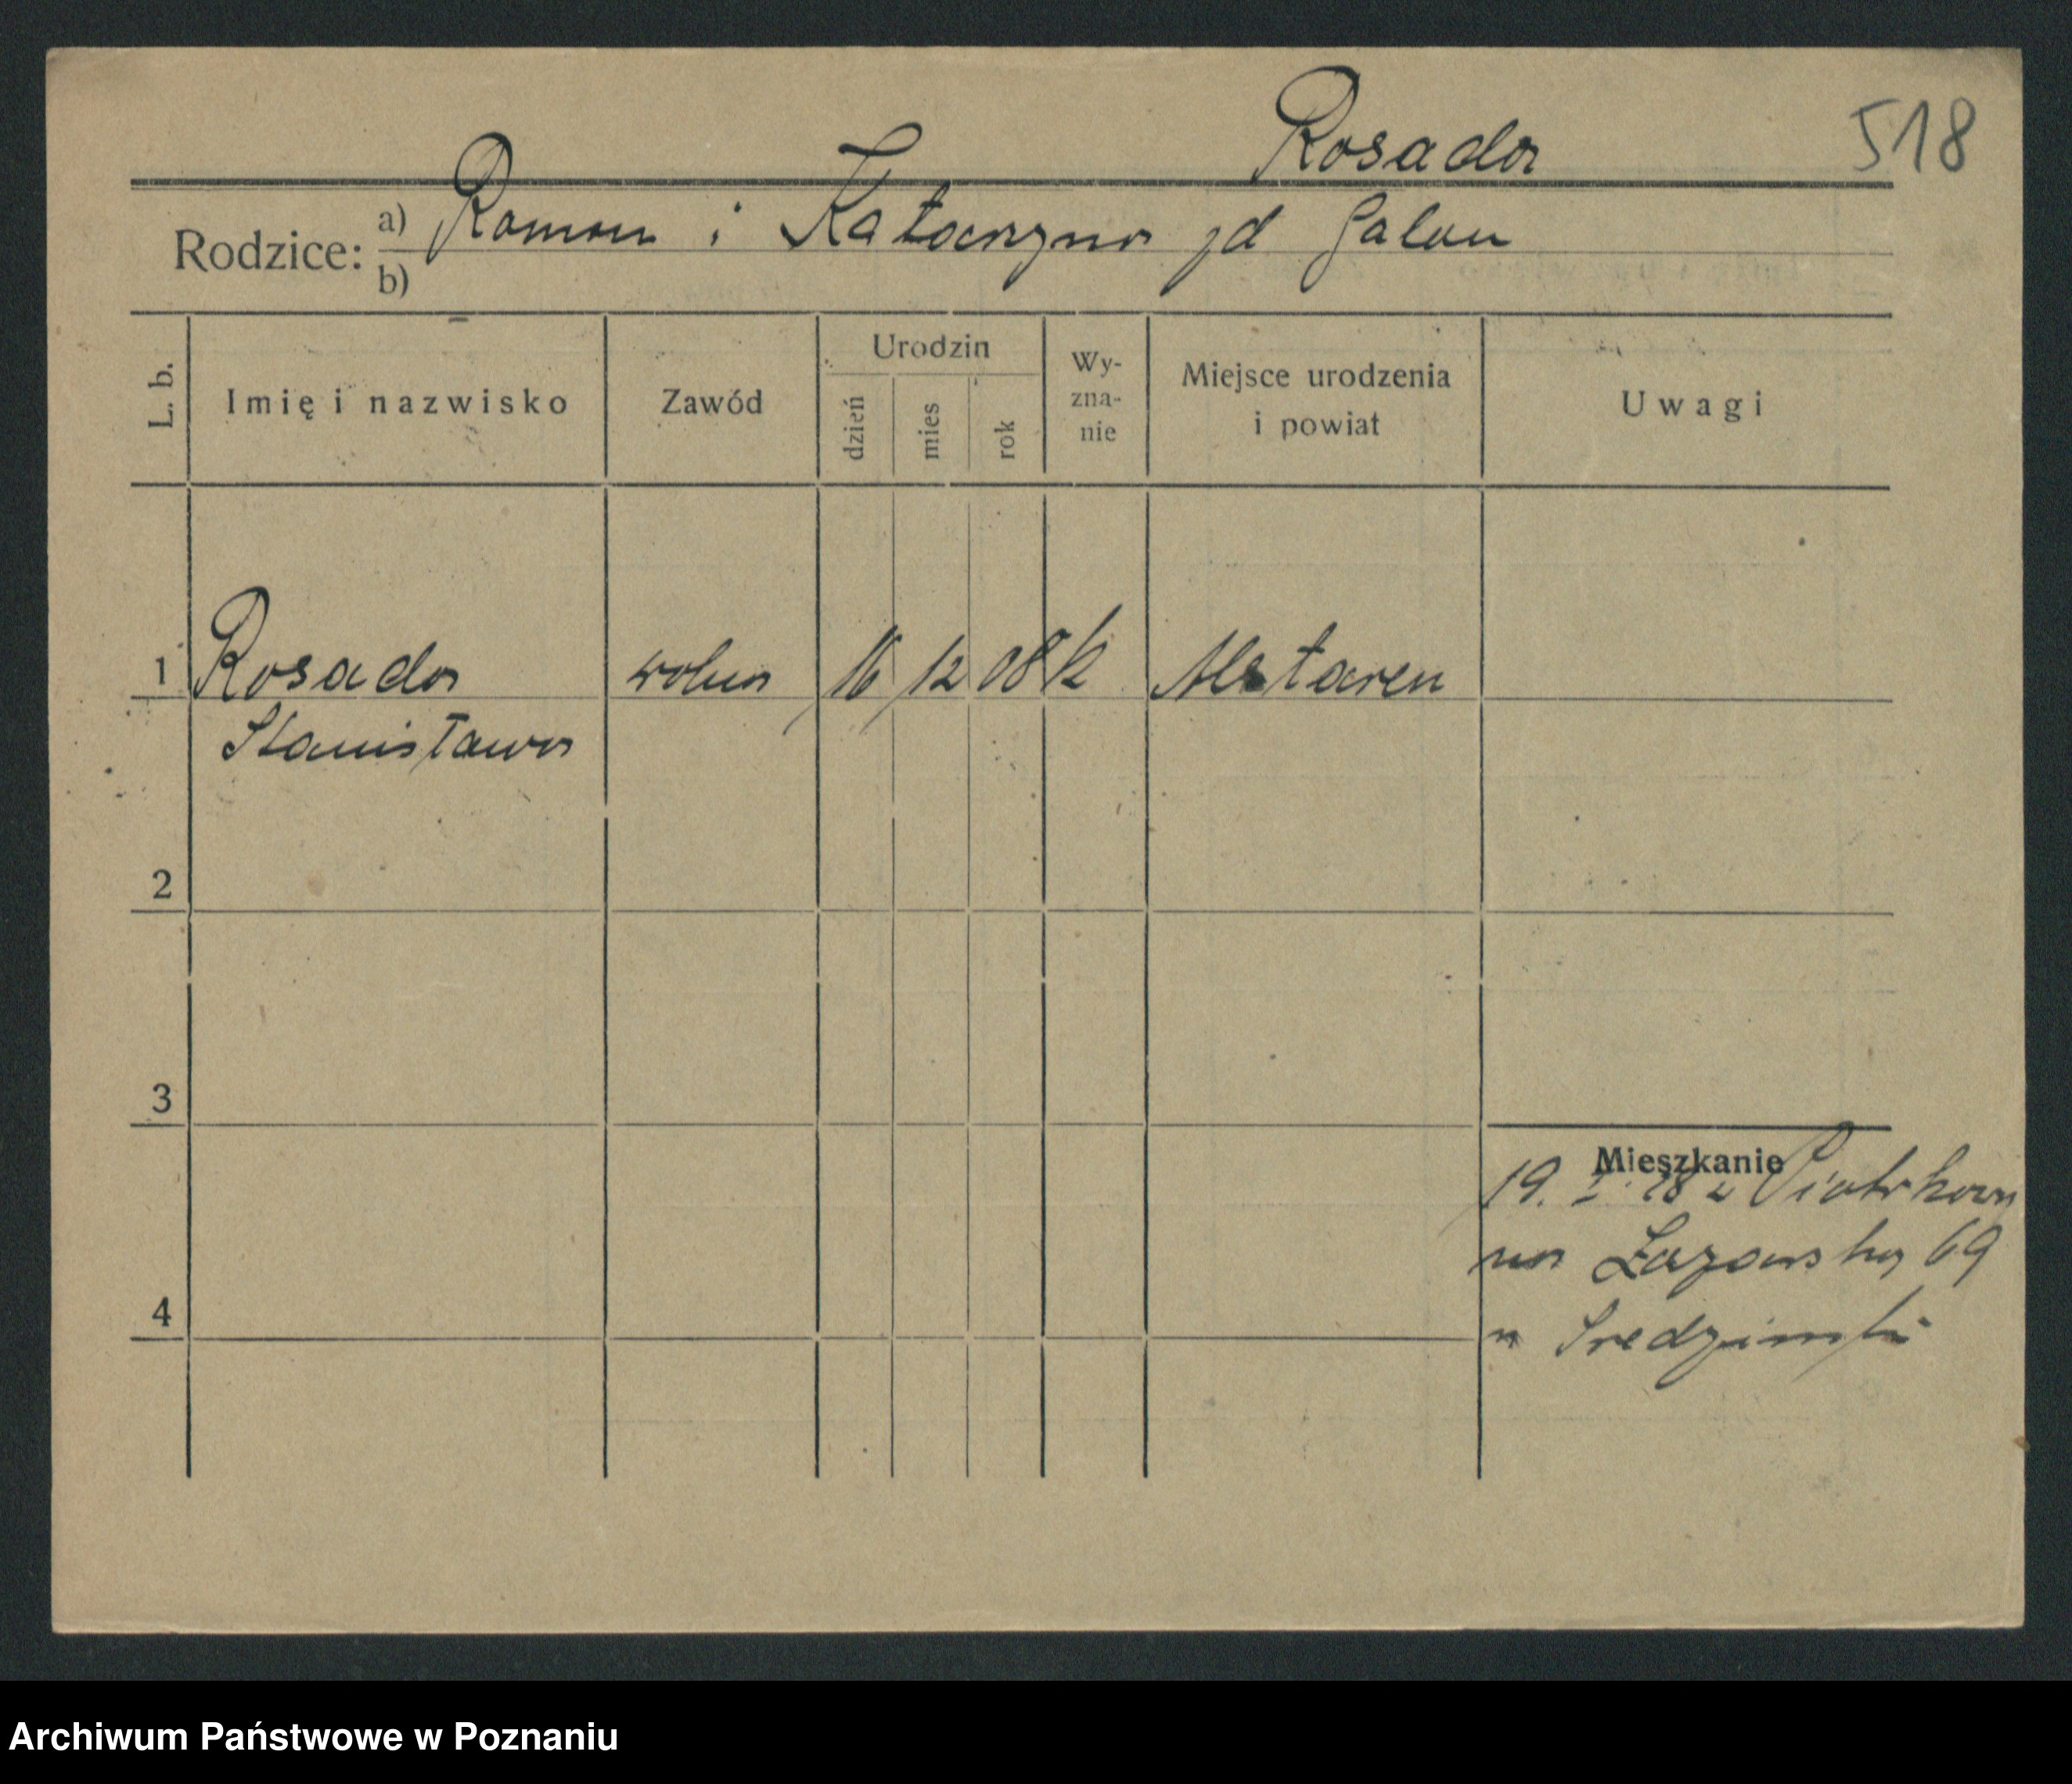 Rosada 518
Rodzice: a) Roman i Katarzyna zd Galau
b)
L. b. Imię i nazwisko Zawód Urodzin dzień mies rok Wy-zna-nie Miejsce urodzenia i powiat Uwagi
1 Rosada wolna 16 12 08 k Alstaren
Stanisława
2
3
Mieszkanie
19. 28 z Piotrkowa
na Łazarską 69
4
Archiwum Państwowe w Poznaniu